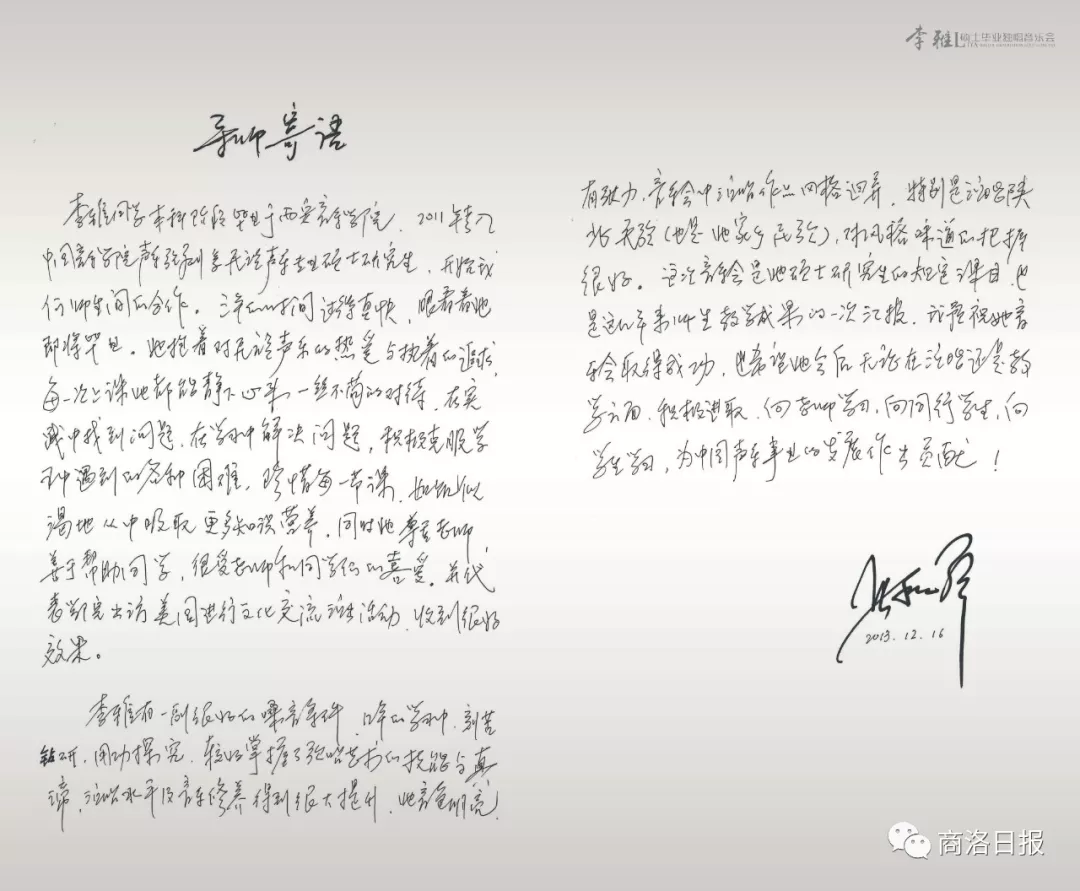 李雅 LIYA 硕士毕业独唱音乐会
导师寄语
李雅同学本科阶段毕业于西安音乐学院，2011年考入
中国音乐学院声乐歌剧系民族声乐专业硕士研究生，开始我
们师生间的合作。三年的时间过得真快，眼看着她
即将毕业。她抱着对民族声乐的热爱与执着的追求，
每一次上课她都能静下心来一丝不苟的对待，在实
践中找到问题，在学习中解决问题，积极克服学
习中遇到的各种困难，珍惜每一节课，如饥似
渴地从中吸取更多知识营养，同时她尊重老师，
善于帮助同学，很受老师和同学们的喜爱，并代
表学院出访美国进行文化交流演出活动，收到很好
效果。
李雅有一副很好的嗓音条件，三年的学习中，刻苦
钻研，用功探究，较好掌握了歌唱艺术的技能与真
谛，演唱水平及音乐修养得到很大提升，她音色明亮，
有张力，音乐会中演唱作品风格迥异，特别是演唱陕
北民歌（也是她家乡民歌），对风格味道的把握
很好。这次音乐会是她硕士研究生的规定课目，也
是这几年来师生教学成果的一次汇报，我预祝她音
乐会取得成功，也希望她今后无论在演唱还是教
学方面，积极进取，向老师学习，向同行学习，向
学生学习，为中国声乐事业的发展作出贡献！
2013.12.16
商洛日报